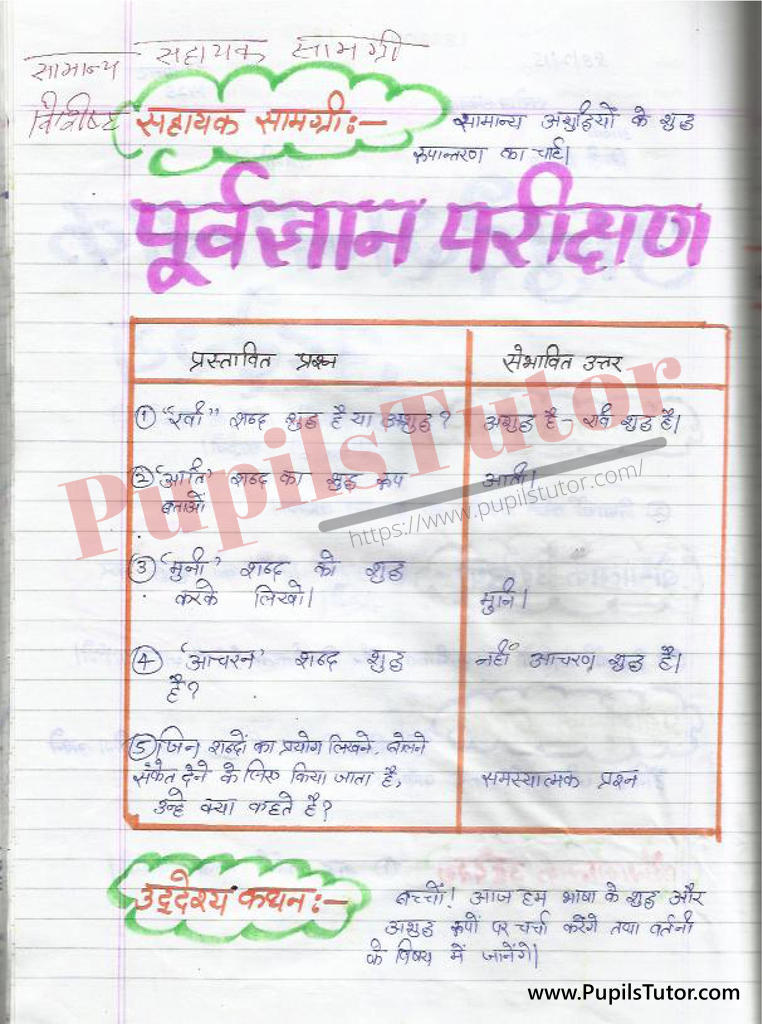 सामान्य सहायक सामग्री
विशिष्ट सहायक सामग्री :- सामान्य अशुद्धियों के शुद्ध
रूपान्तरण का चार्ट।
पूर्वज्ञान परीक्षण
प्रस्तावित प्रश्न संभावित उत्तर
① "रवी" शब्द शुद्ध है या अशुद्ध? अशुद्ध है - रवि शुद्ध है।
② 'आति' शब्द का शुद्ध रूप आती।
बताओं
③ 'मुनी' शब्द को शुद्ध
करके लिखो। मुनि।
④ 'आचरन' शब्द शुद्ध नहीं आचरण शुद्ध है।
है?
⑤ जिन शब्दों का प्रयोग लिखने, बोलने
संकेत देने के लिए किया जाता है, समस्यात्मक प्रश्न
उन्हे क्या कहते है?
उद्देश्य कथन :- बच्चों! आज हम भाषा के शुद्ध और
अशुद्ध रूपों पर चर्चा करेंगे तथा वर्तनी
के विषय में जानेंगे।
PupilsTutor
https://www.pupilstutor.com/
www.PupilsTutor.com